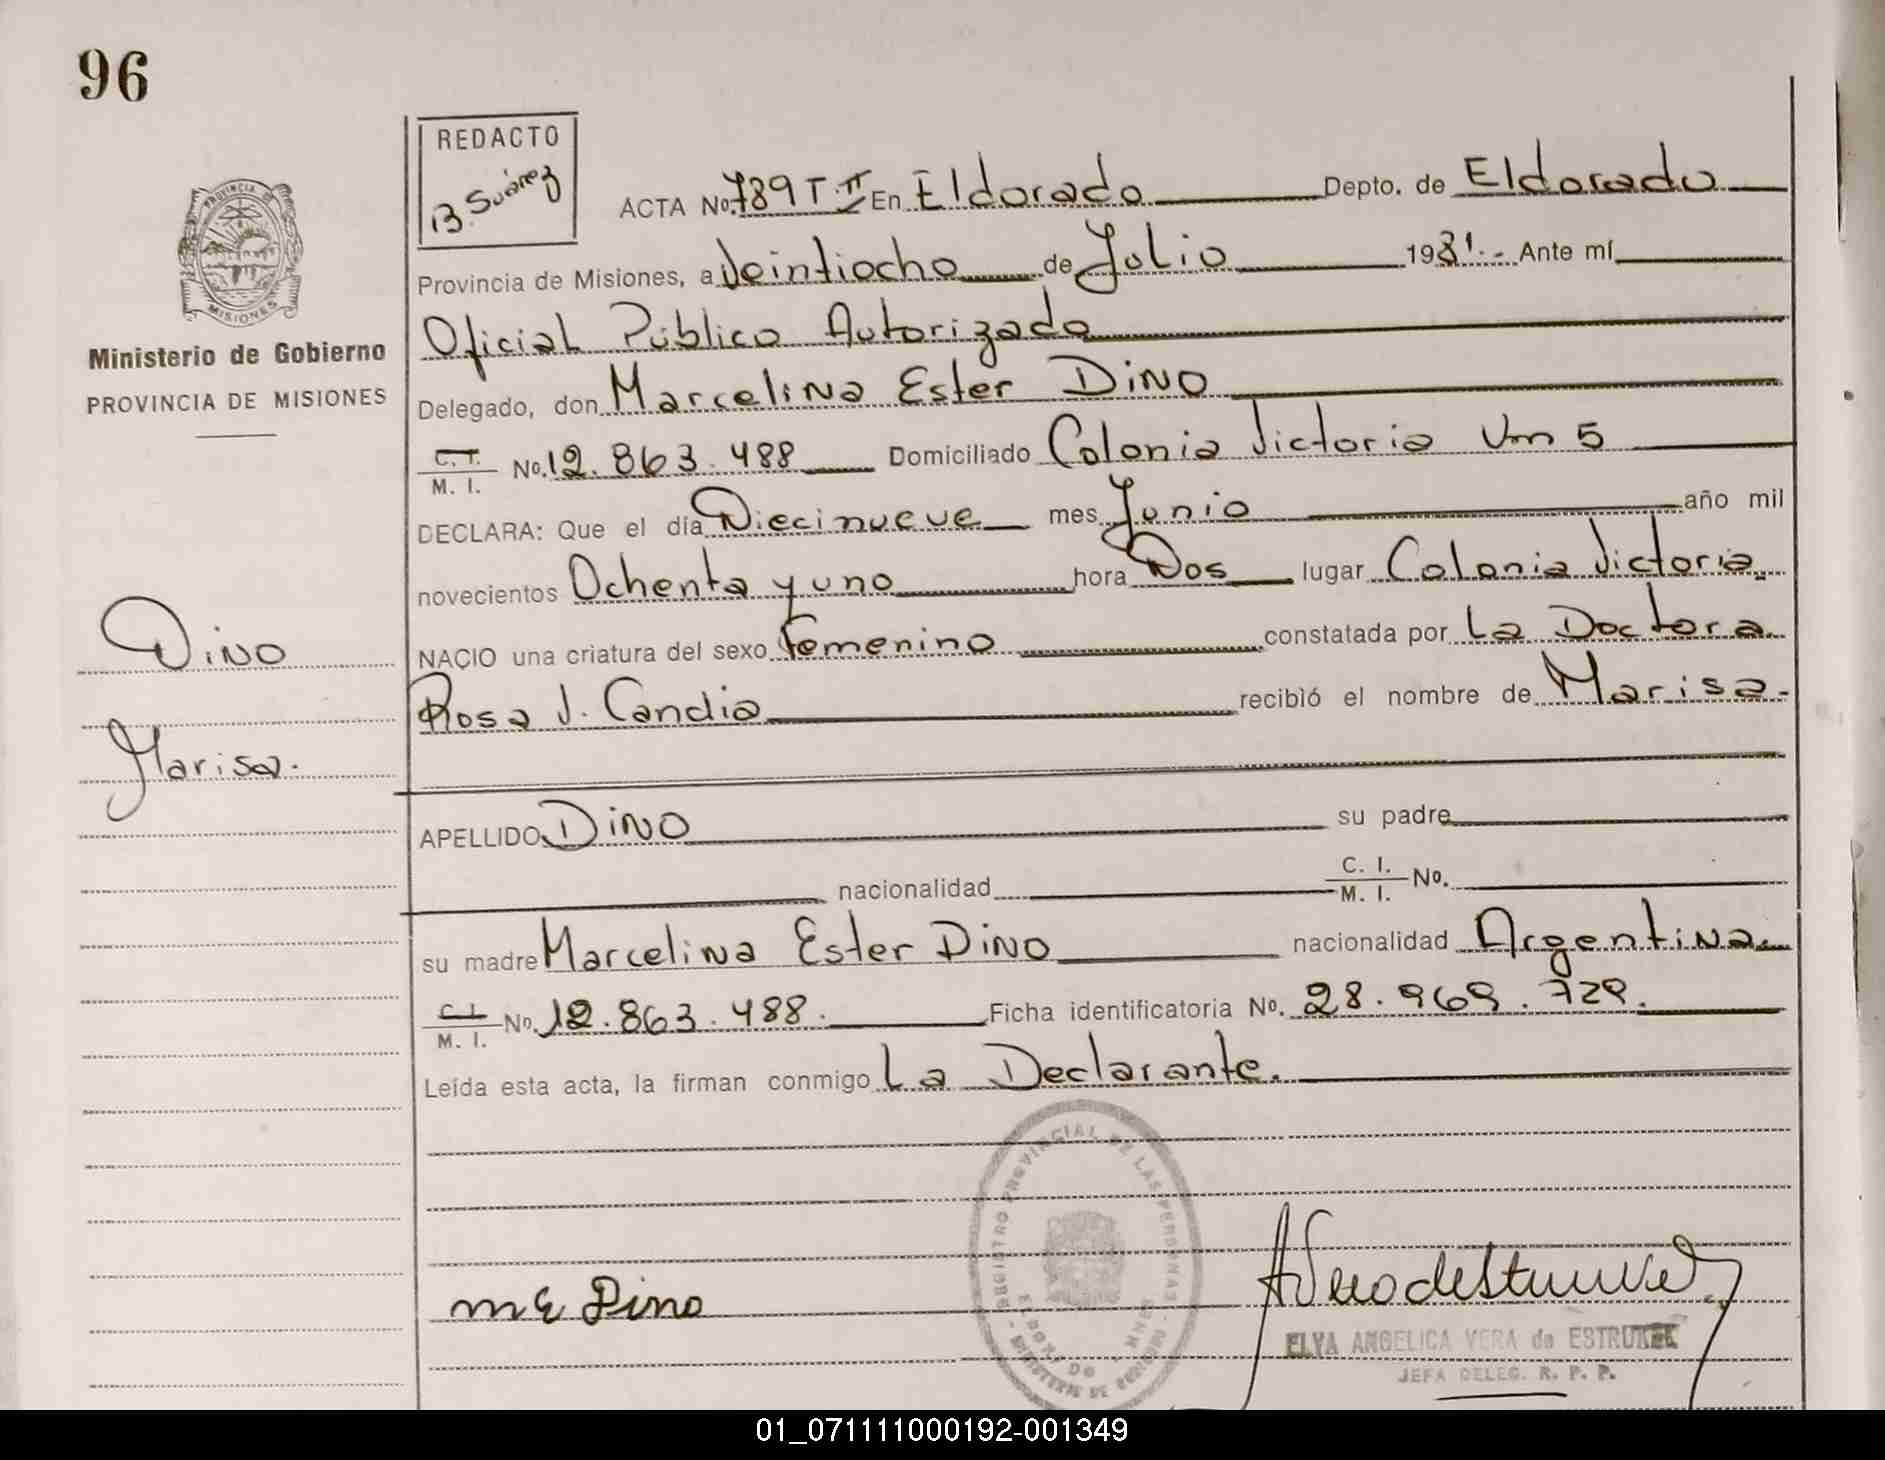 96
REDACTO
B. Suárez
ACTA No. 789 T. II En Eldorado Depto. de Eldorado
Provincia de Misiones, a Veintiocho de Julio 1981.- Ante mí
Oficial Público Autorizado
Delegado, don Marcelina Ester Dino
M. I. No. 12.863.488 Domiciliado Colonia Victoria Km 5
DECLARA: Que el día Diecinueve mes Junio año mil
novecientos Ochenta y uno hora Dos lugar Colonia Victoria.
NACIO una criatura del sexo Femenino constatada por La Doctora
Rosa J. Candia recibió el nombre de Marisa.-
APELLIDO Dino su padre
nacionalidad C. I. M. I. No.
su madre Marcelina Ester Dino nacionalidad Argentina
C. I. M. I. No. 12.863.488. Ficha identificatoria No. 28.969.729.
Leída esta acta, la firman conmigo La Declarante.
PROVINCIA DE MISIONES
Ministerio de Gobierno
PROVINCIA DE MISIONES
Dino
Marisa.
M E Dino
REGISTRO PROVINCIAL DE LAS PERSONAS - MINISTERIO DE GOBIERNO
ELDORADO
ELVA ANGELICA VERA de ESTRUBEL
JEFA DELEG. R. P. P.
01_071111000192-001349